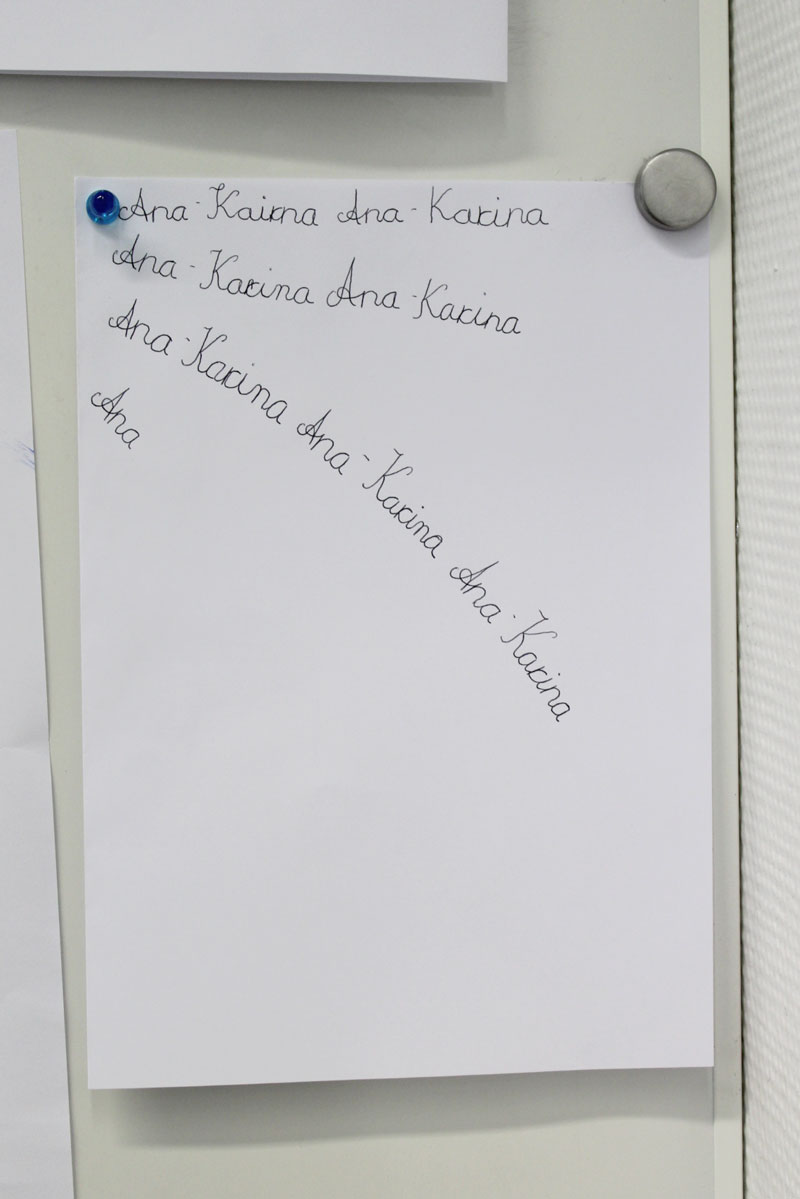 Ana-Kairna Ana-Karina
Ana-Karina Ana-Karina
Ana-Karina Ana-Karina Ana-Karina
Ana